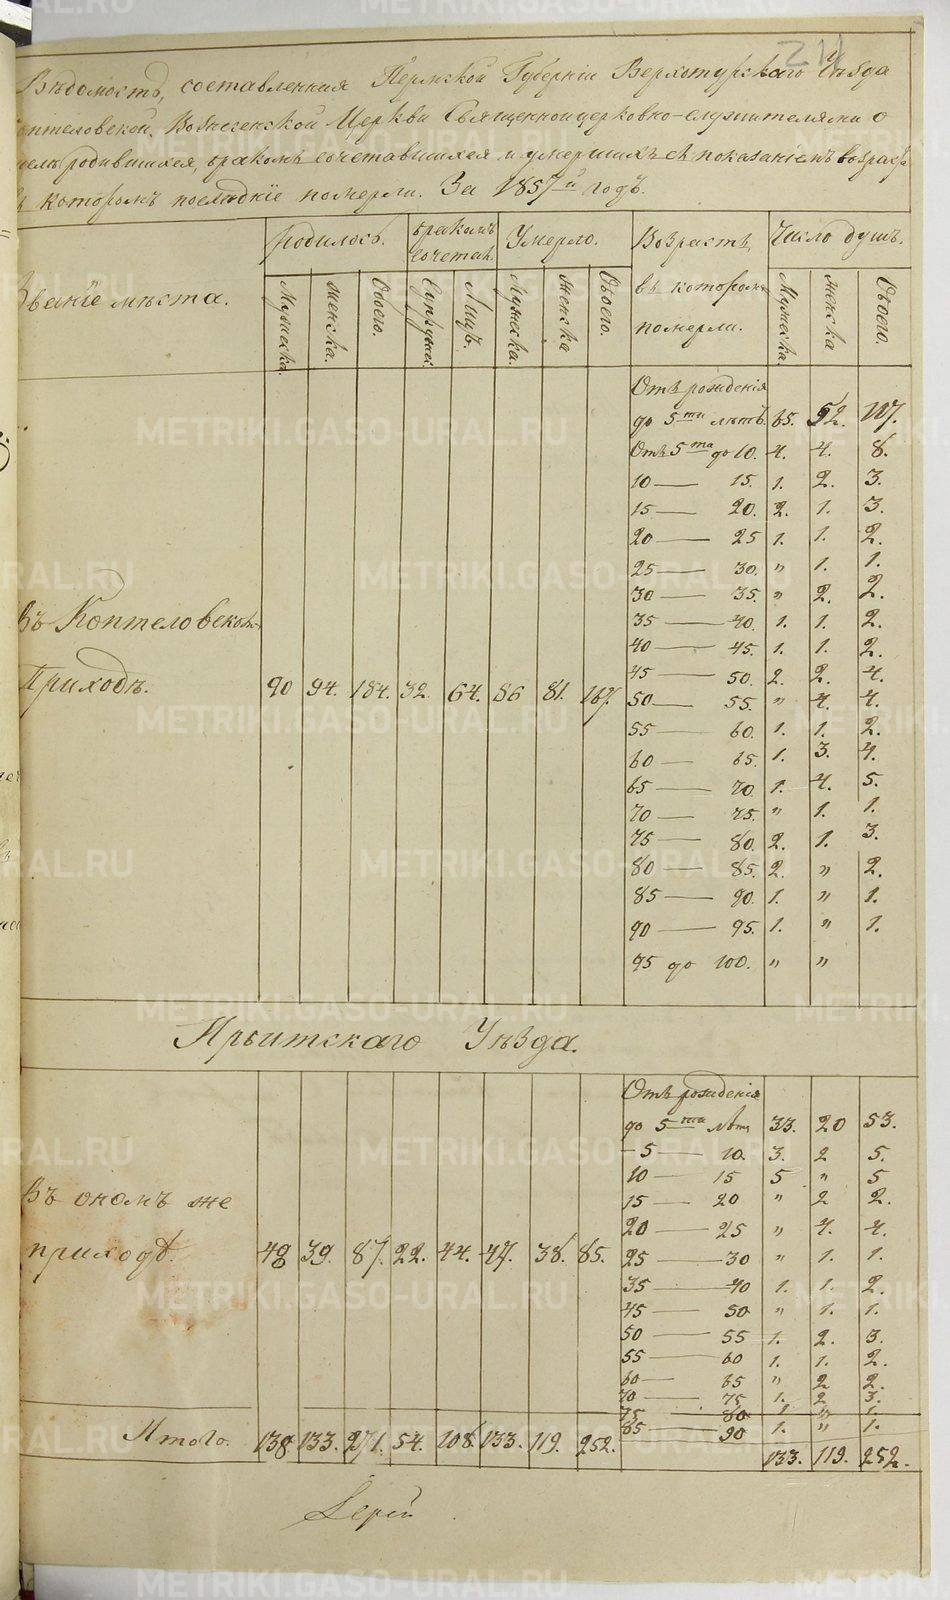 214
Вѣдомость, составленная Пермской Губерніи Верхотурскаго Уѣзда
Коптеловской, Вознесенской Церкви Священноцерковно-служителями о
числѣ родившихся, бракомъ сочетавшихся и умершихъ съ показаніемъ возраста
въ которомъ послѣдніе померли. За 1857й годъ.
Званіе мѣста. Родилось. Бракомъ сочетал. Умерло. Возрастъ въ которомъ померли. Число душъ.
Мужеска. Женска. Обоего. Супруж. Лицъ. Мужеска. Женска Обоего. Мужеска. Женска Обоего.
Отъ рожденія
до 5ти лѣтъ. 65. 52. 117.
Отъ 5та до 10. 4. 4. 8.
10 — 15. 1. 2. 3.
15 — 20. 2. 1. 3.
20 — 25 1. 1. 2.
25 — 30. „ 1. 1.
30 — 35. „ 2. 2.
35 — 40. 1. 1. 2.
40 — 45. 1. 1. 2.
45 — 50. 2. 2. 4.
Въ Коптеловскомъ
Приходѣ. 90 94. 184. 32. 64. 86 81. 167.
50 — 55. „ 4. 4.
55 — 60. 1. 1. 2.
60 — 65. 1. 3. 4.
65 — 70. 1. 4. 5.
70 — 75. „ 1. 1.
75 — 80. 2. 1. 3.
80 — 85. 2. „ 2.
85 — 90. 1. „ 1.
90 — 95. 1. „ 1.
95 до 100. „ „
Ирбитскаго Уѣзда.
Отъ рожденія
до 5ти лѣтъ 33. 20 53.
- 5 — 10. 3. 2 5.
10 — 15 5 „ 5
15 — 20 „ 2 2.
20 — 25 „ 4. 4.
Въ ономъ же
приходѣ. 48 39. 87. 22. 44. 47. 38. 85.
25 — 30 „ 1. 1.
35 — 40 1. 1. 2.
45 — 50 „ 1. 1.
50 — 55 1. 2. 3.
55 — 60 1. 1. 2.
60 — 65 „ 2 2.
70 — 75 1. 2 3.
75 — 80 1. „ 1.
85 — 90 1. „ 1.
Итого. 138 133. 271. 54. 108. 133. 119. 252.
133. 119. 252.
METRIKI.GASO-URAL.RU